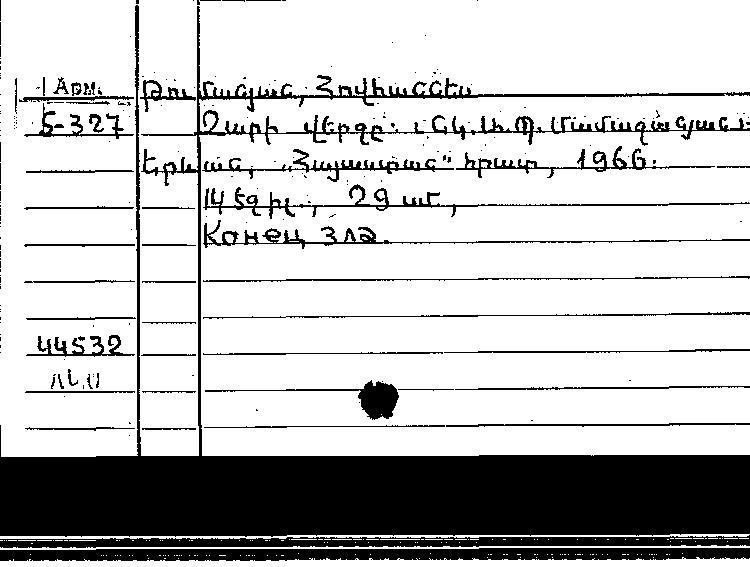 Арм. Թումանյան, Հովհաննես
Տ-327 Չարի վերջը: Նկ. Լ. Պ. Մամագանյանի
Երևան, „Հայաստան“ հրատ, 1966.
14 էջ իլ., 29 սմ,
Конец зла.
44532